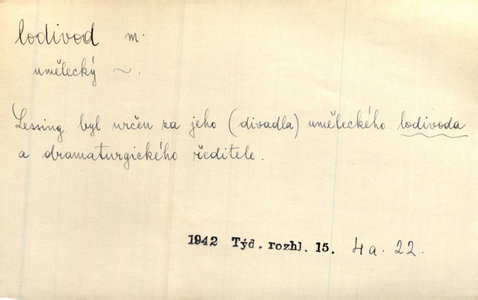 lodivod m.
umělecký ~.
Lessing byl určen za jeho (divadla) uměleckého lodivoda
a dramaturgického ředitele.
1942 Týd. rozhl. 15. 4a. 22.